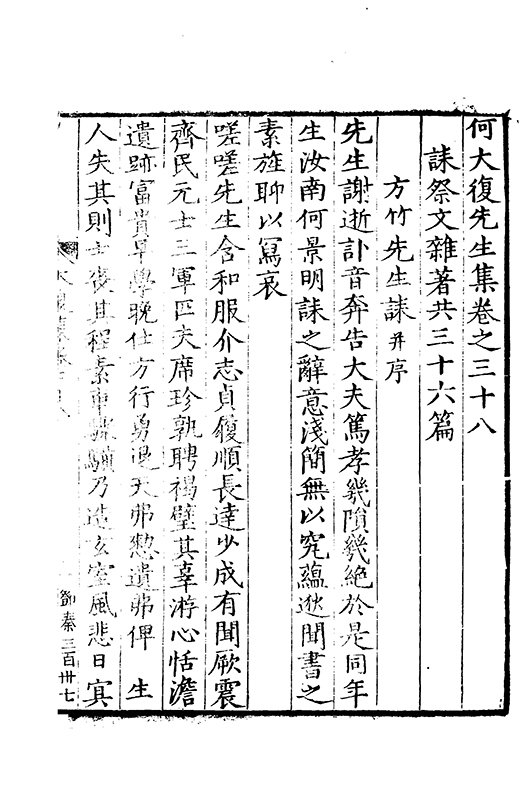 何大復先生集卷之三十八
誄祭文雜著共三十六篇
方竹先生誄并序
先生謝逝訃音奔告大夫篤孝幾隕幾絕於是同年
生汝南何景明誄之辭意淺簡無以究蘊遬聞書之
素旌聊以冩哀
嗟嗟先生含和服介志貞履順長達少成有聞厥震
齊民元士三軍匹夫席珍孰聘褐璧其辜游心恬澹
遺跡富貴早學晚仕方行勇退天弗憖遺弗俾 生
人失其則士後其程素車驂驥乃造玄室風悲日㝠
鄧秦三百卅七